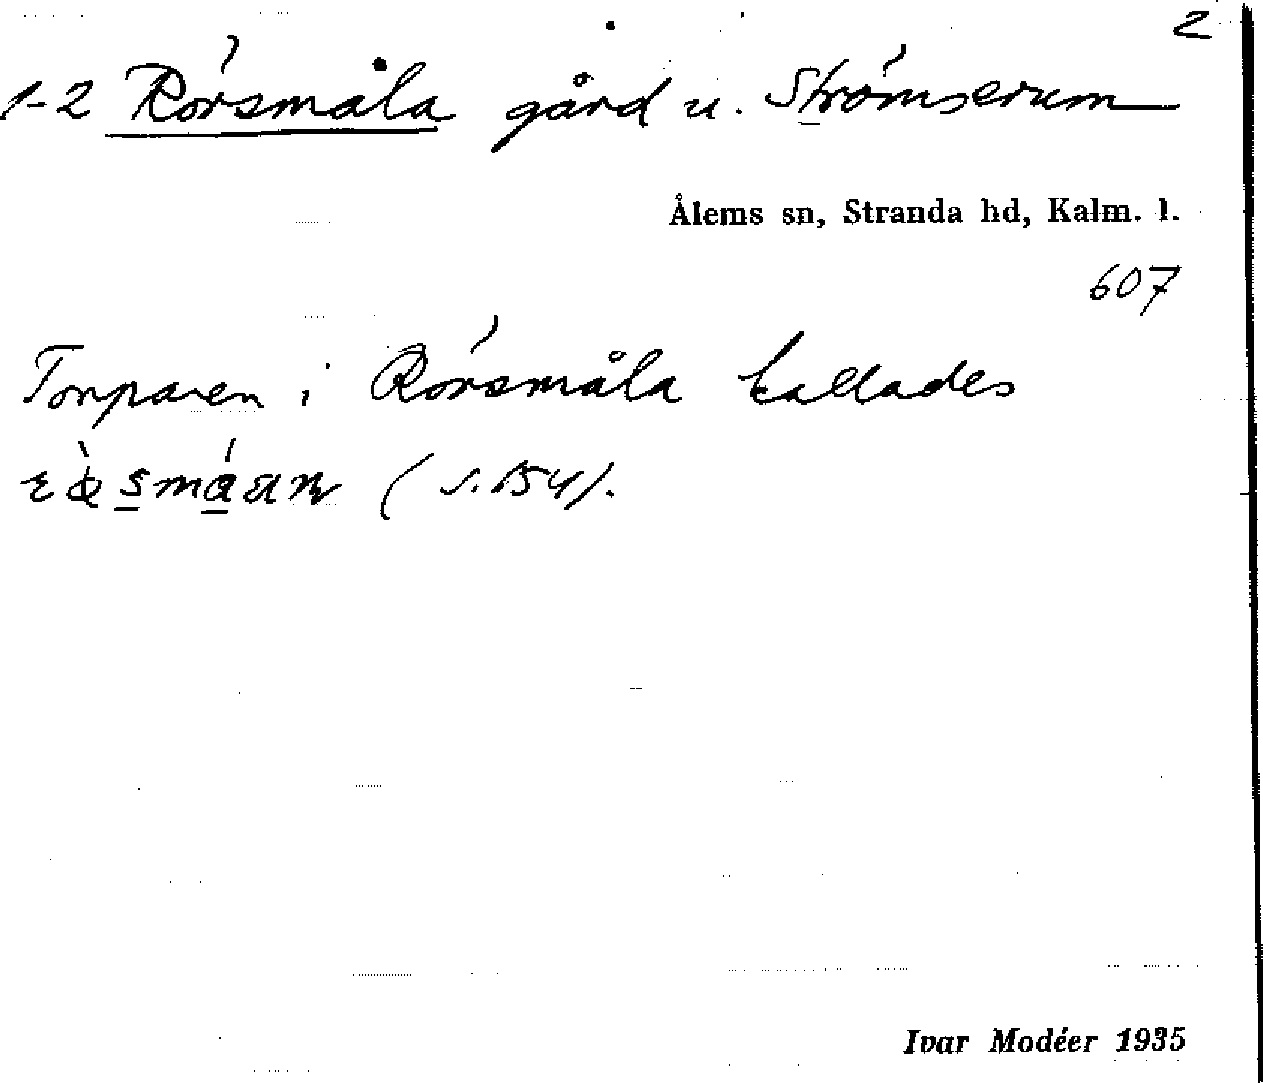 2
1-2 Rörsmåla gård u. Strömserum
Ålems sn, Stranda hd, Kalm. l.
607
Torparen i Rörsmåla kallades
(s. 154).
Ivar Modéer 1935